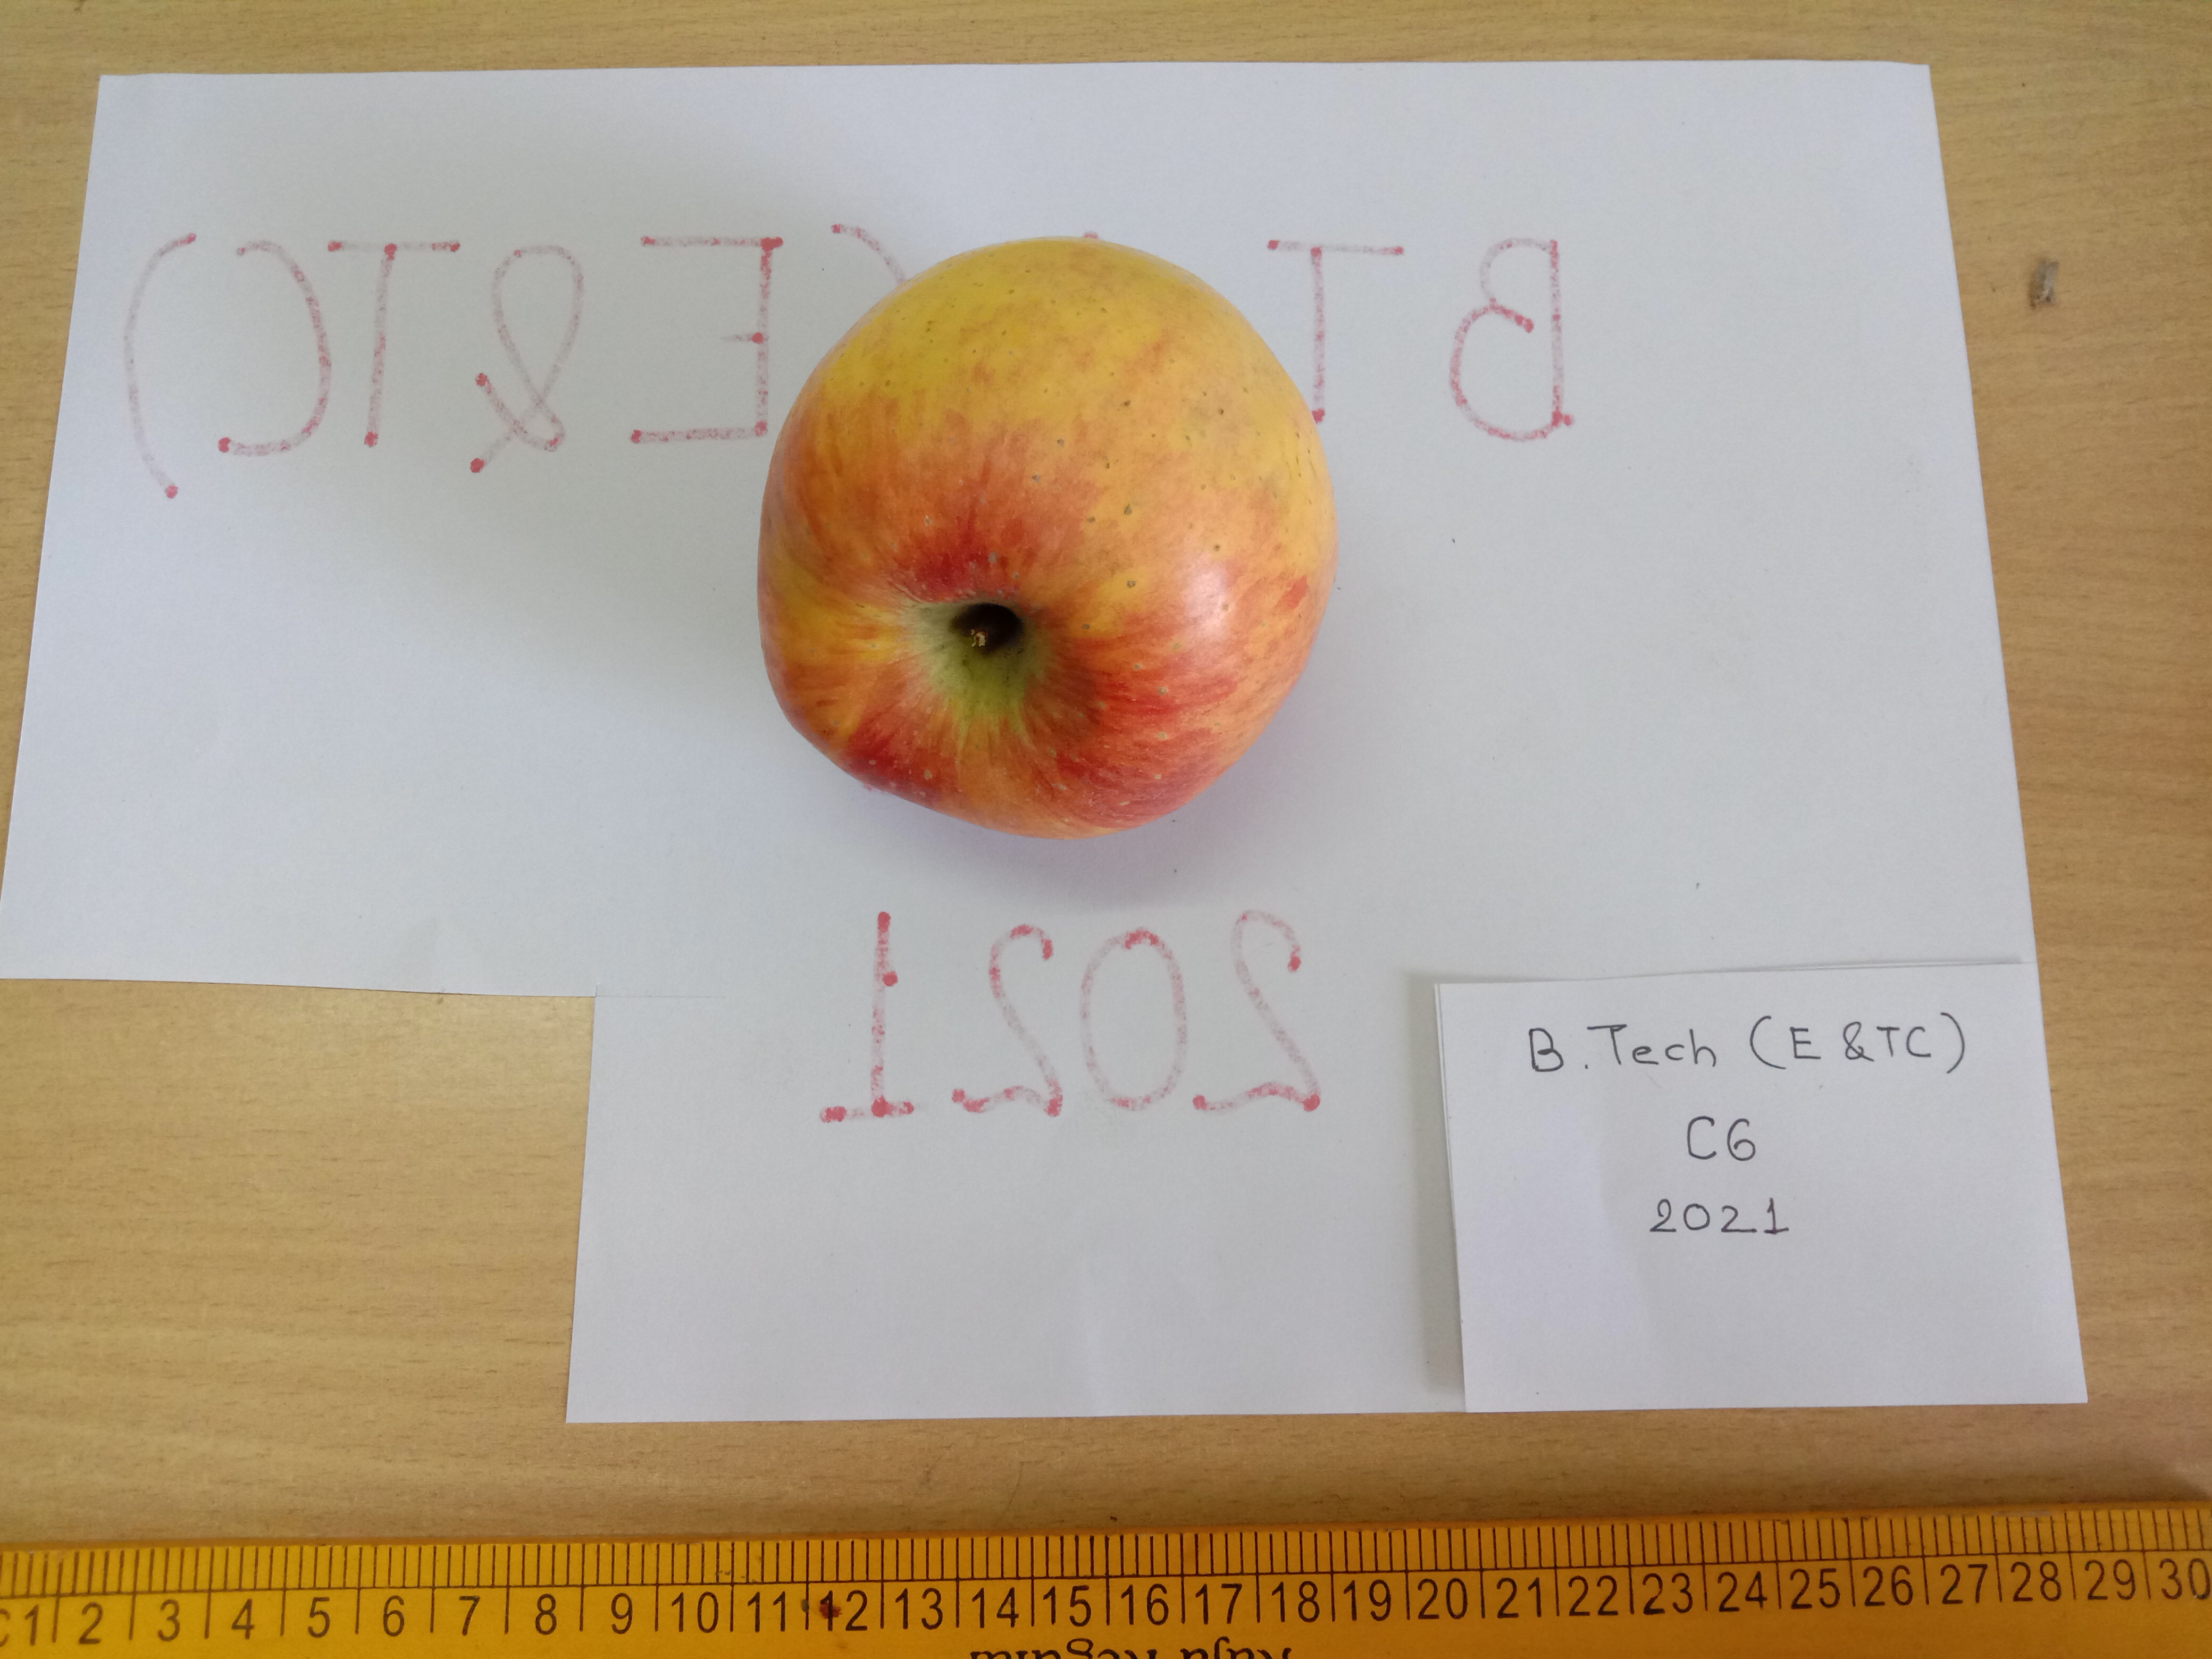 B T (E&TC)
2021
B.Tech (E &TC)
C6
2021
1 2 3 4 5 6 7 8 9 10 11 12 13 14 15 16 17 18 19 20 21 22 23 24 25 26 27 28 29 30